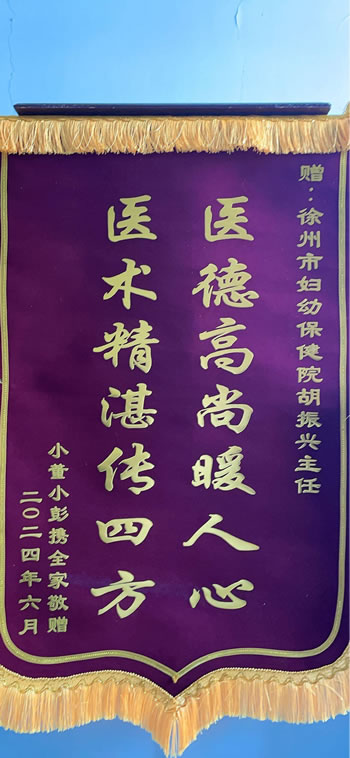 赠：徐州市妇幼保健院胡振兴主任
医德高尚暖人心
医术精湛传四方
小董小彭携全家敬赠
二〇二四年六月